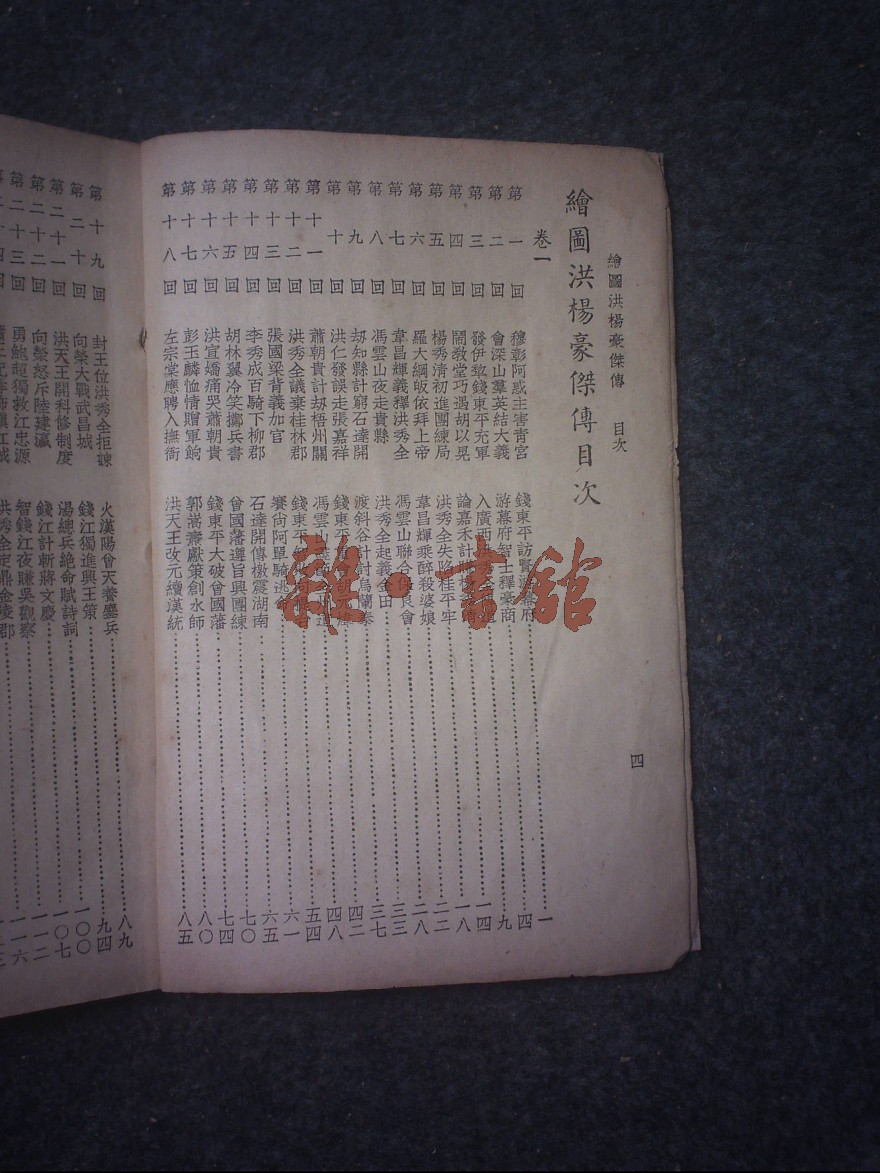 繪圖洪楊豪傑傳　目次
四
繪圖洪楊豪傑傳目次
卷一
第一回　穆彰阿惑主害青宮　錢東平訪賢遊幕府……一
第二回　會深山羣英結大義　游幕府智士釋豪商……四
第三回　發伊犂錢東平充軍　入廣西洪秀全……九
第四回　鬧教堂巧遇胡以晃　論嘉禾計……一四
第五回　楊秀清初進團練局　洪秀全失陷桂平牢……一八
第六回　羅大綱皈依拜上帝　韋昌輝乘醉殺婆娘……二二
第七回　韋昌輝義釋洪秀全　馮雲山聯合保良會……二八
第八回　馮雲山夜走貴縣　洪秀全起義金田……三三
第九回　刼知縣計窮石達開　渡斜谷計討烏蘭泰……三七
第十回　洪仁發誤走張嘉祥　錢東平……四二
第十一回　蕭朝貴計刼梧州關　馮雲山……四八
第十二回　洪秀全議棄桂林郡　錢東平……五四
第十三回　張國梁背義加官　賽尚阿單騎逃……六一
第十四回　李秀成百騎下柳郡　石達開傳檄震湖南……六五
第十五回　胡林翼冷笑擲兵書　曾國藩遵旨興團練……七〇
第十六回　洪宣嬌痛哭蕭朝貴　錢東平大破曾國藩……七四
第十七回　彭玉麟恤情贈軍餉　郭嵩燾獻策創水師……八〇
第十八回　左宗棠應聘入撫衙　洪天王改元續漢統……八五
第十九回　封王位洪秀全拒諫　火漢陽曾天養鏖兵……八九
第二十回　向榮大戰武昌城　錢江獨進興王策……九四
第二十一回　洪天王開科修制度　湯總兵絕命賦詩詞……一〇〇
第二十二回　向榮怒斥陸建瀛　錢江計斬蔣文慶……一〇七
第二十三回　勇鮑超獨救江忠源　智錢江夜賺吳觀察
洪秀全定鼎金陵郡
雜·書館